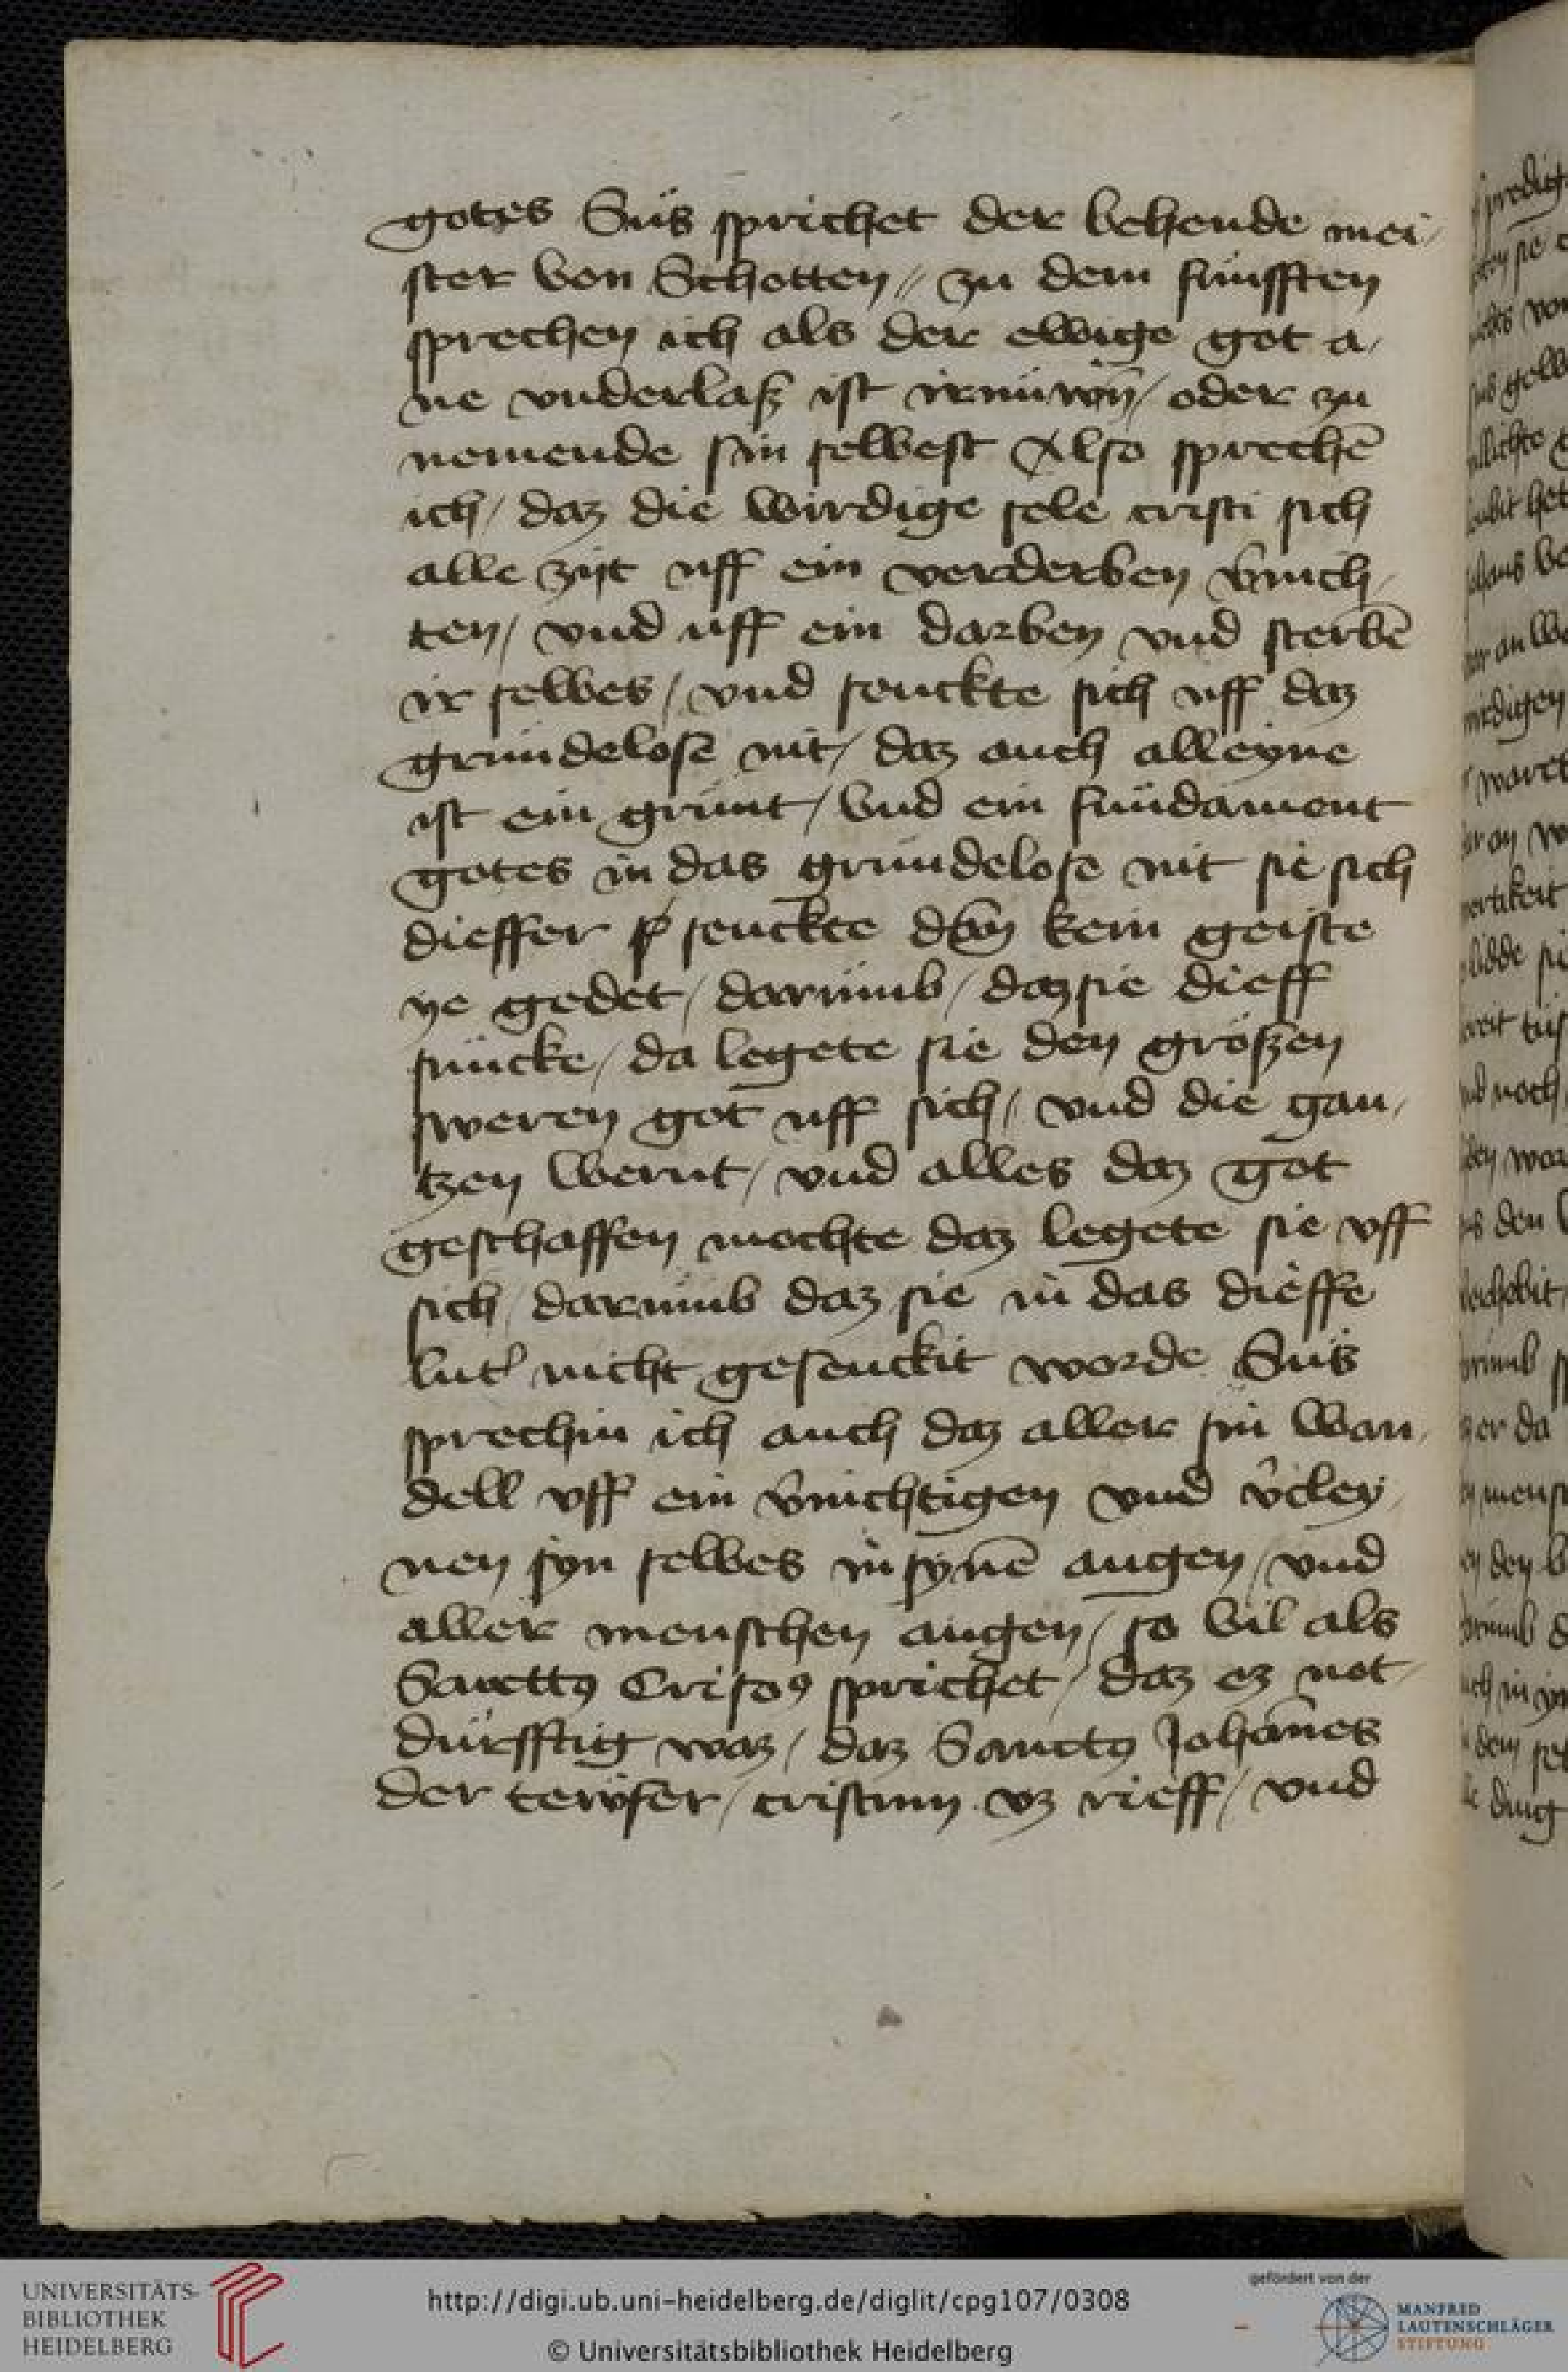 gotes Sus sprichet der behende mei-
ster von Schotten // zu dem funfften
sprechen ich als der ewige got a-
ne vnderlaß ist / oder zu
nemende sin selbest Also sprechē
ich / daz die wirdige sele cristi sich
alle zijt uff ein verderben v̄nich-
ten / vnd uff ein darben vnd sterbē
ir selbes / vnd senckte sich uff daz
grundelose nit / daz auch alleyne
ist ein grunt / vnd ein fundament
gotes in das grundelose nit sie sich
dieffer senckte kein geiste
ye gedet / darumb / daz sie dieff
suncke / da legete sie den großen
sweren got uff sich / vnd die gan-
tzen wernt / vnd alles daz got
geschaffen mochte daz legete sie vff
sich / darumb daz sie in das dieffe
nicht gesenckit worde Sus
sprechin ich auch daz aller sin wan-
dell vff ein v̄nichtigen vnd v̄cley-
nen syn selbes in synē augen / vnd
aller menschen augen / so vil als
Sanctus sprichet / daz ez not-
durfftig waz / daz Sanctus Johānes
der teufser / cristum vz rieff / vnd
UNIVERSITÄTS-
BIBLIOTHEK
HEIDELBERG
http://digi.ub.uni-heidelberg.de/diglit/cpg107/0308
© Universitätsbibliothek Heidelberg
gefördert von der
MANFRED
LAUTENSCHLÄGER
STIFTUNG